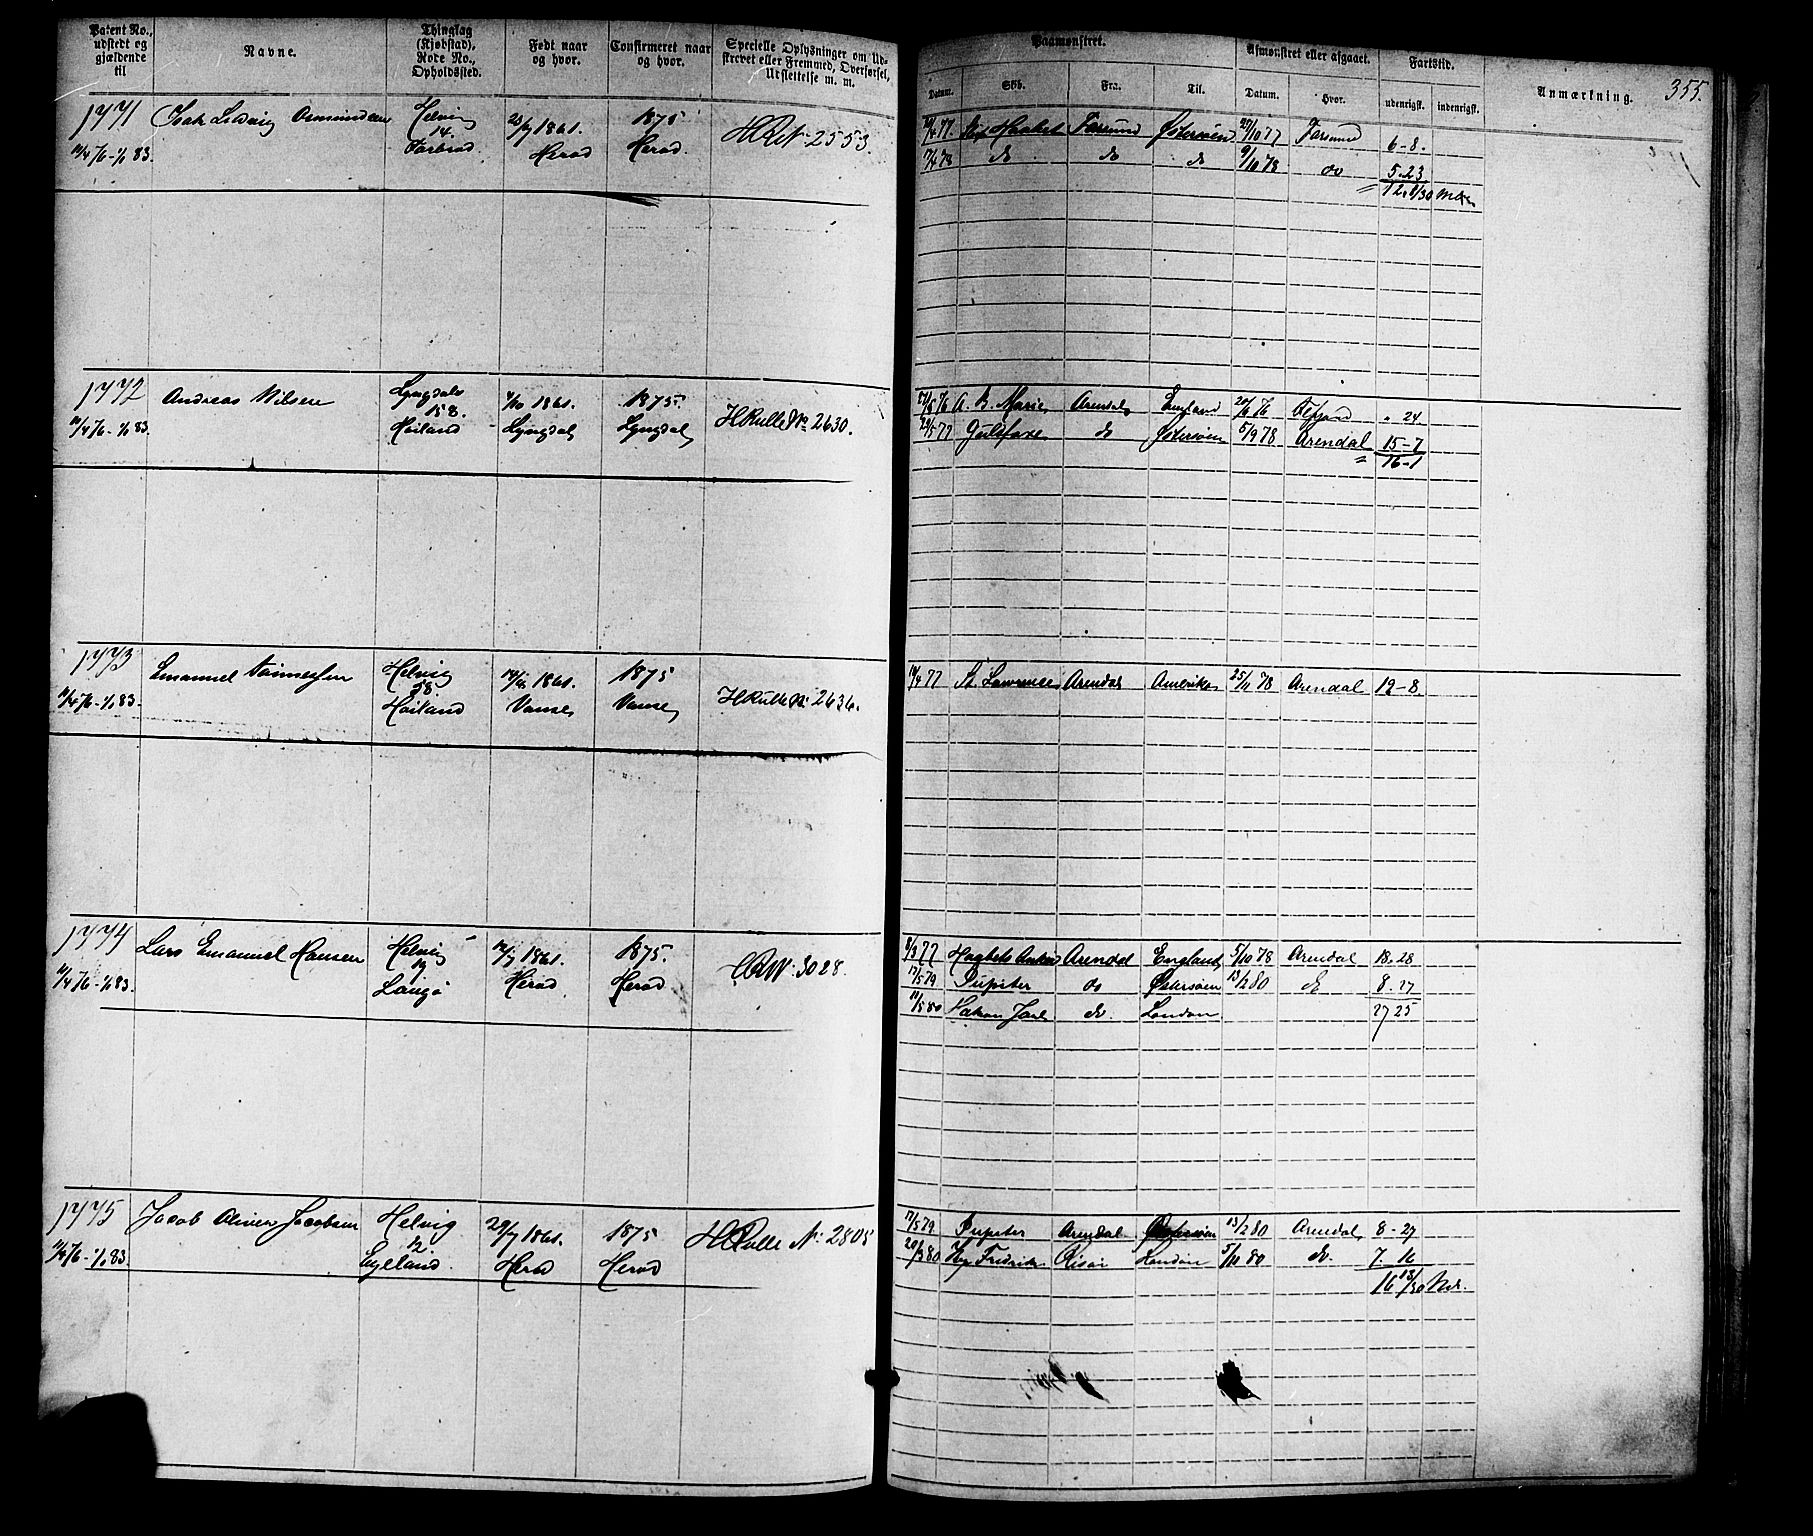 Patent No., udstedt og gjældende til
Navne.
Thinglag (Kjøbstad), Rode No., Opholdssted.
Født naar og hvor.
Confirmeret naar og hvor.
Specielle Oplysninger om Udskrevet eller Fremmed, Overførsel, Udslettelse m. m.
Paamønstret.
Datum.
Skib.
Fra.
Til.
Afmønstret eller afgaaet.
Datum.
Hvor.
Fartstid.
udenrigsk.
indenrigsk.
Anmærkning.
355.
1771
Isak Ludvig
Helvig
14.
23/7 1861.
Herad
1875
Herad.
2553.
77
Farsund
Østersøen
27/10 77
Farsund
6-8.
78
do
do
do
9/10 78
do
5.23
1772
Andreas Nilsen
Lyngdals
158.
Høiland
1861.
Lyngdal
1875.
Lyngdal
HRulle No 2630.
76
Marie
Arendal
England
76
24.
77
Gulfaxe
do
Østersøen
5/9 78
Arendal
15-7
16-1
1773
Emanuel Tønnessen
Helvig
58
Høiland
1861.
Vanse
1875
Vanse
HRulle No 2636.
77
St. Lawrence
Arendal
Amerika
25/11 78
Arendal
12-8
1774
Lars Emanuel Hansen
Helvig
Langø
1861.
Herad
1875.
Herad
3028.
8/3 77
Arendal
England
5/10 78
Arendal
18.28
17/5 79
Jupiter
do
Østersøen
13/2 80
do
8.27
11/5 80
Hakon Jarl
do.
London
27 25
1775
Jacob Oliver Jacobsen
Helvig
12.
Eyeland.
29/7 1861.
Herad
1875
Herad
HRulle No: 2805
17/5 79
Jupiter
Arendal.
Østersøen
13/2 80
Arendal
8-27
80
Fredrik
Risør
London
5/11 80
do.
7.16
16 13/30 Md.